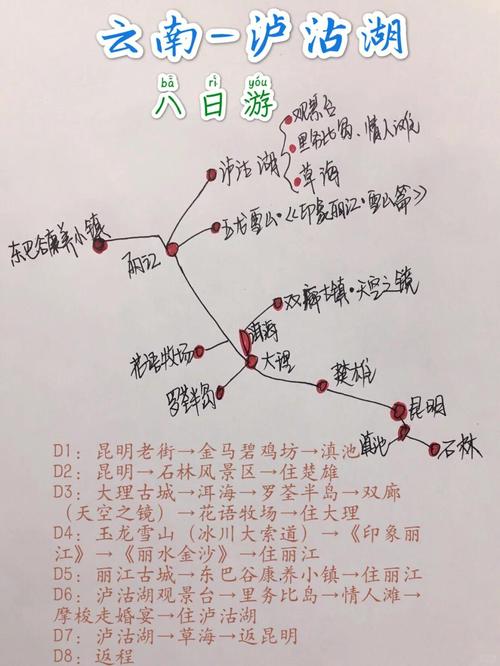 云南-泸沽湖
bā rì yóu
八日游
观景台
里务比岛、情人滩
草海
泸沽湖
玉龙雪山·《印象丽江·雪山篇》
东巴谷康养小镇
丽江
双廊古镇·天空之镜
洱海
花语牧场
大理
罗荃半岛
楚雄
昆明
滇池
石林
D1：昆明老街→金马碧鸡坊→滇池
D2：昆明→石林风景区→住楚雄
D3：大理古城→洱海→罗荃半岛→双廊
（天空之镜）→花语牧场→住大理
D4：玉龙雪山（冰川大索道）→《印象丽
江》→《丽水金沙》→住丽江
D5：丽江古城→东巴谷康养小镇→住丽江
D6：泸沽湖观景台→里务比岛→情人滩→
摩梭走婚宴→住泸沽湖
D7：泸沽湖→草海→返昆明
D8：返程